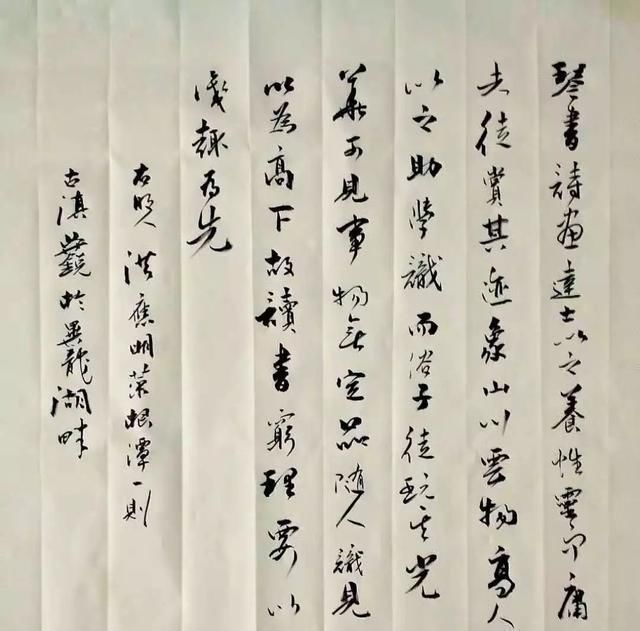 琴書詩畫達士以之養性靈而庸
夫徒賞其迹象山川雲物高人
以之助學識而俗子徒玩其光
華可見事物無定品隨人識見
以為高下故讀書窮理要以
識趣為先
右明人洪應明菜根潭一則
古滇於異龍湖畔